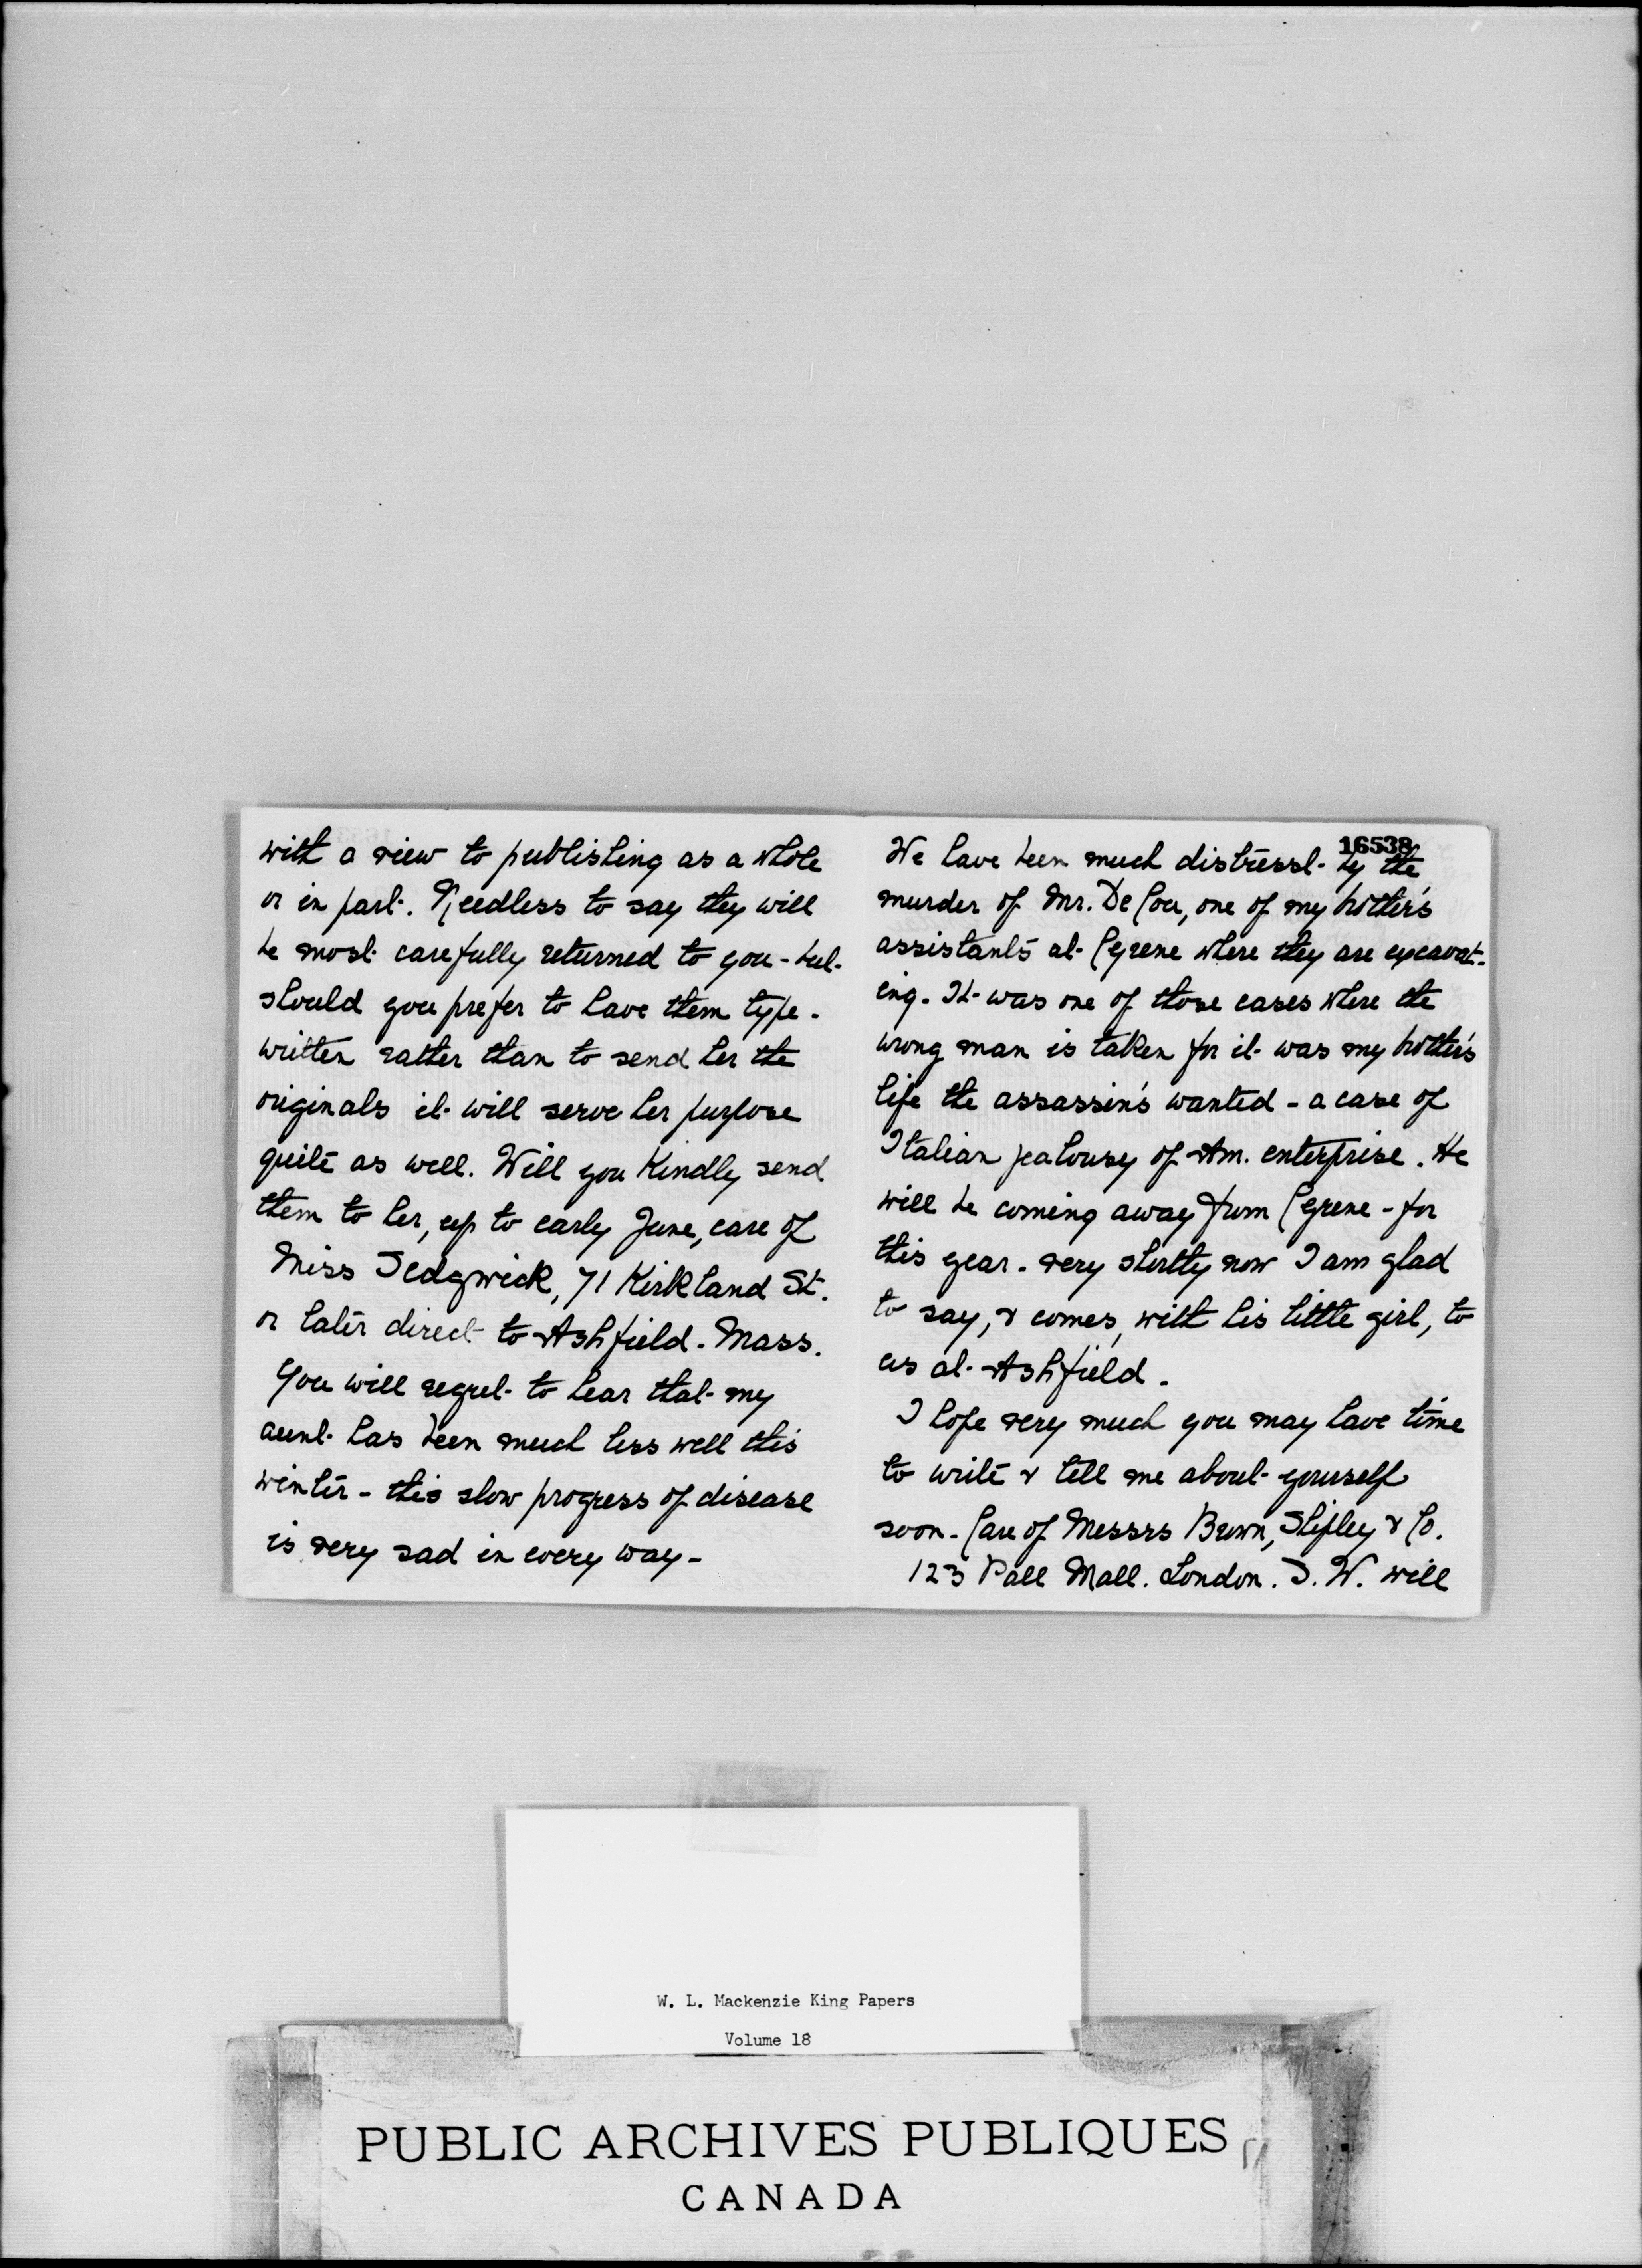 with a view to publishing as a whole
or in part. Needless to say they will
be most carefully returned to you - but
should you prefer to have them type-
written rather than to send her the
originals it will serve her purpose
quite as well. Will you kindly send
them to her, up to early June, care of
Miss Sedgwick, 71 Kirkland St.
or later direct to Ashfield. Mass.
You will regret to hear that my
aunt has been much less well this
winter - this slow progress of disease
is very sad in every way -
16538
We have been much distressd by the
murder of Mr. De Cou, one of my brother's
assistants at Cyrene where they are excavat-
ing. It was one of those cases where the
wrong man is taken for it was my brother's
life the assassins wanted - a case of
Italian jealousy of Am. enterprise. He
will be coming away from Cyrene - for
this year - very shortly now I am glad
to say, & comes, with his little girl, to
us at Ashfield.
I hope very much you may have time
to write & tell me about yourself
soon - Care of Messrs Brown, Shipley & Co.
123 Pall Mall. London. S. W. will
W. L. Mackenzie King Papers
Volume 18
PUBLIC ARCHIVES PUBLIQUES
CANADA